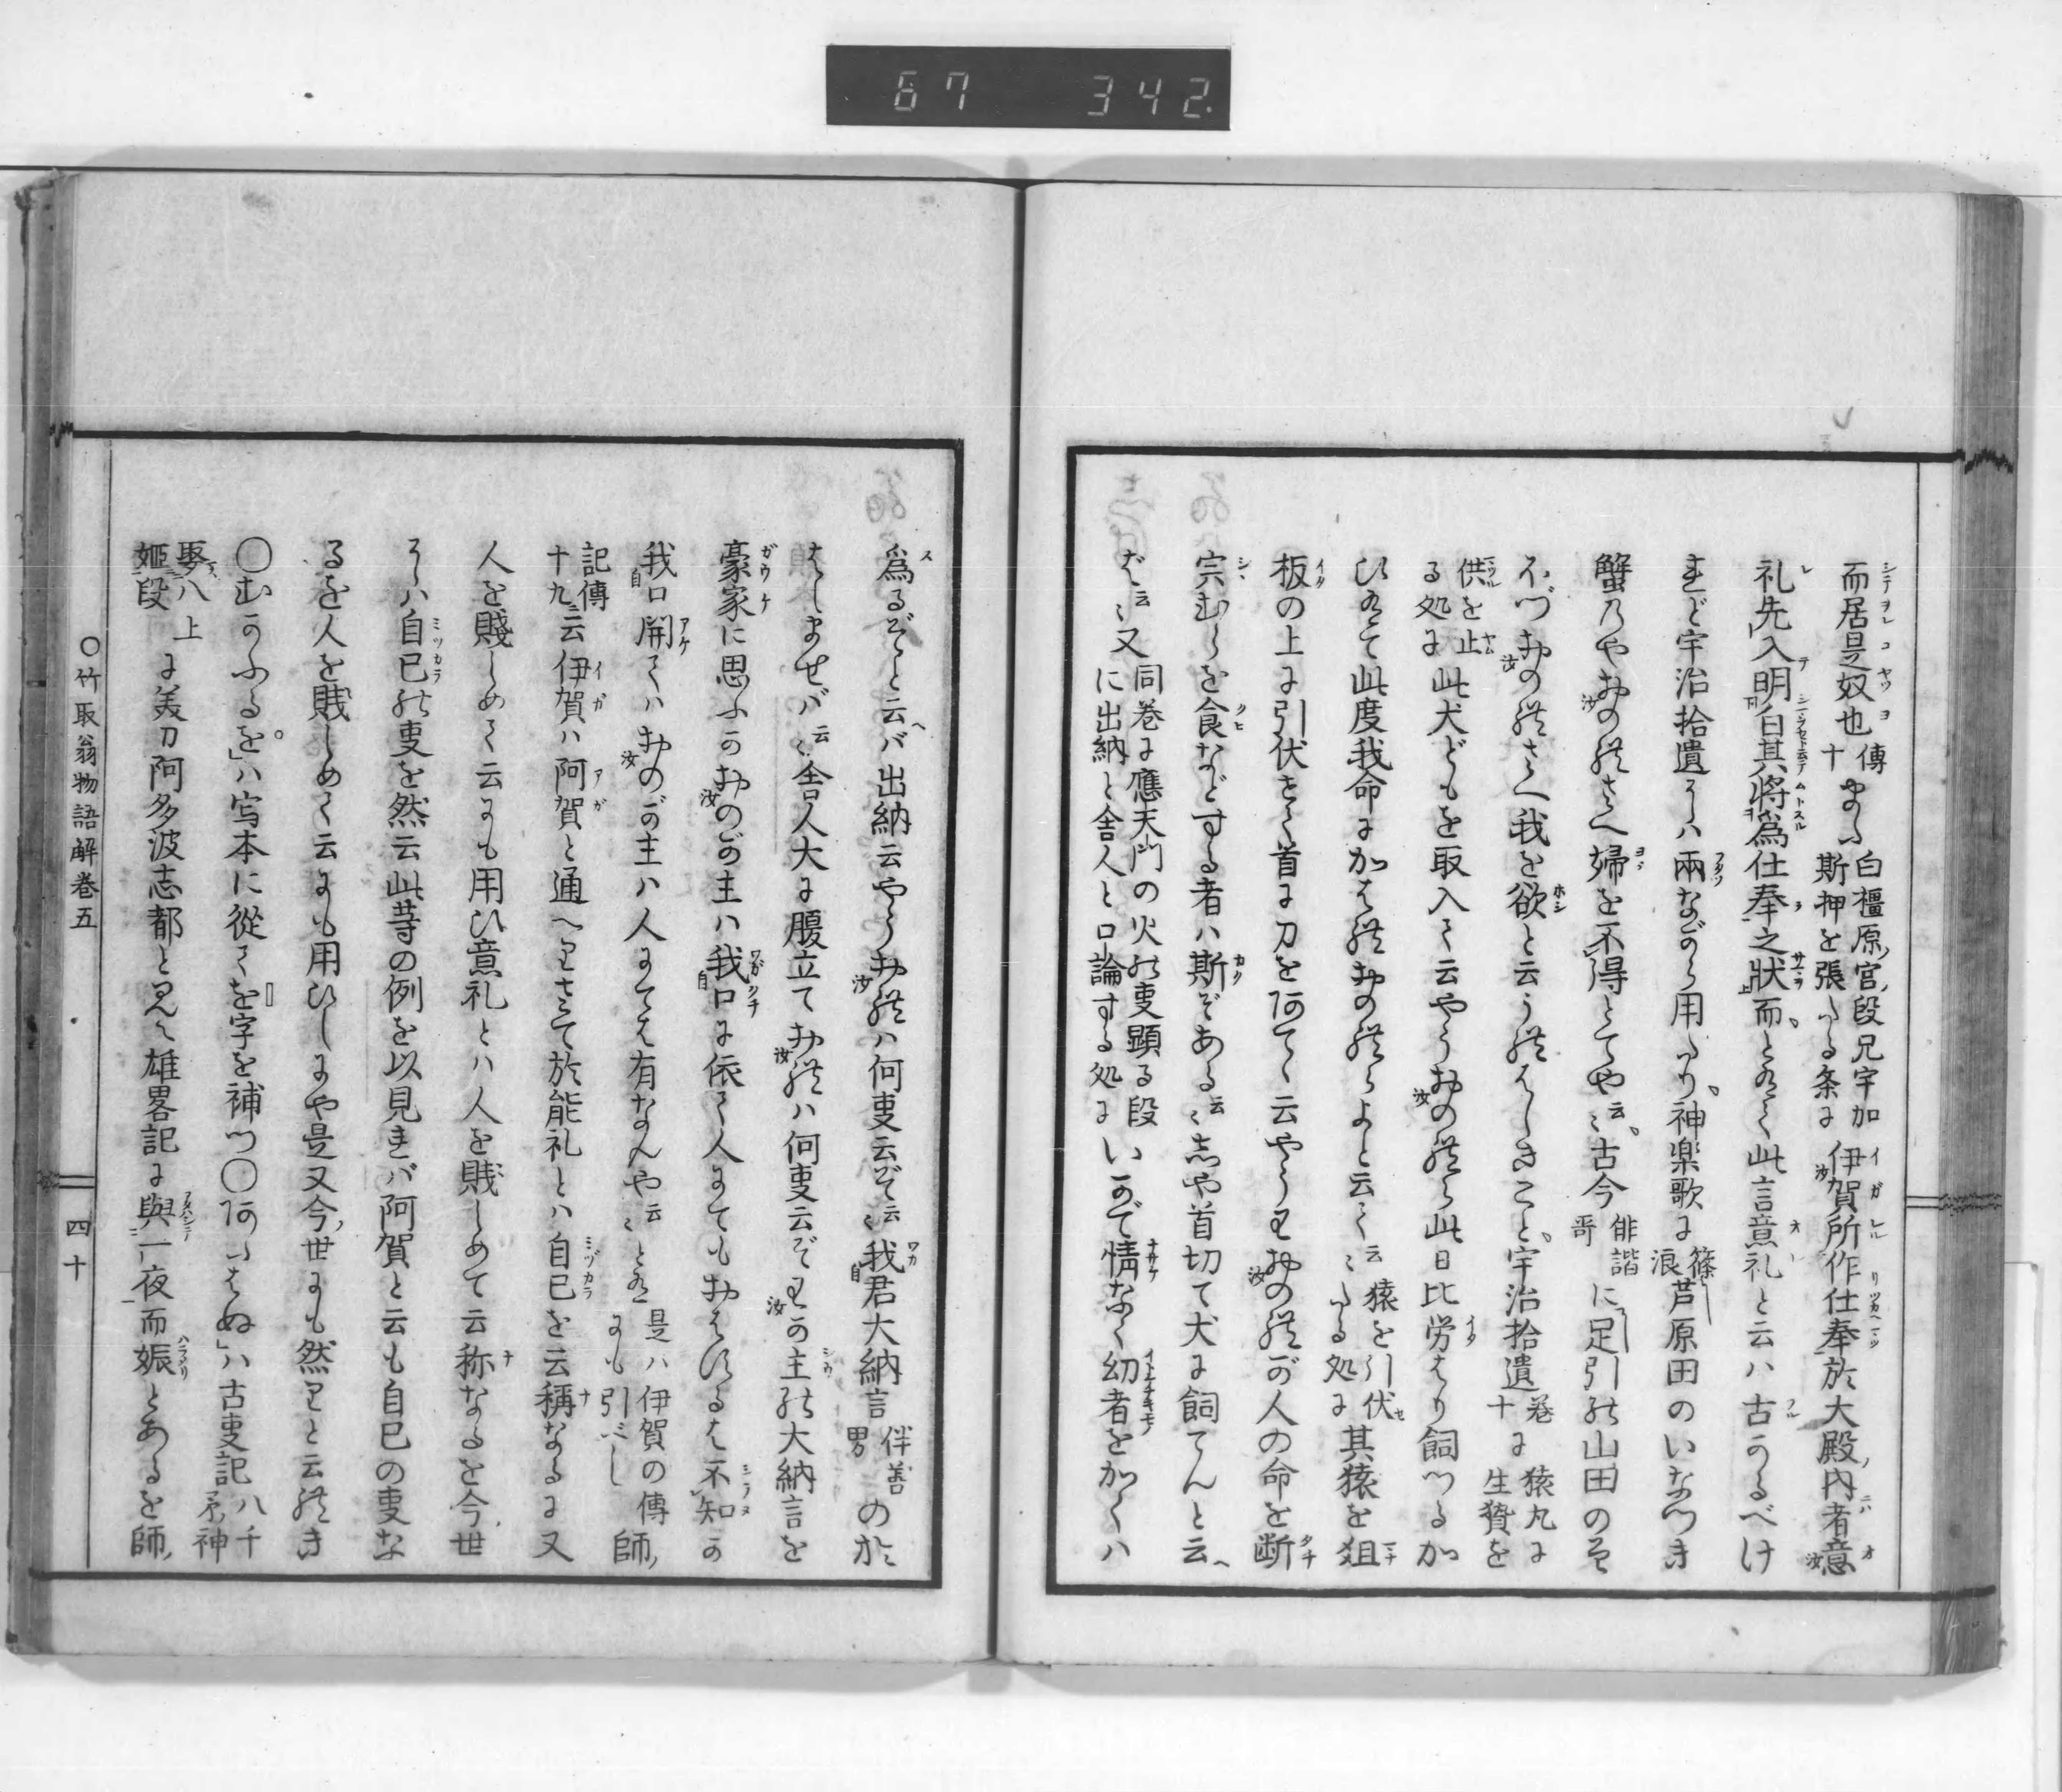 67 342.
而居是奴也傳十また白檮原宮段兄宇加斯押を張たる条に伊賀所作仕奉於大殿内者意
礼先入明白其将為仕奉之状而とありて此言意礼と云ハ古かるべけ
れど宇治拾遺にハ兩ながら用たり神楽歌に篠浪芦原田のいなつき
蟹乃やおのれさへ婦を不得とてや云〻古今俳諧哥に足引の山田のそ
ほづおのれさへ我を欲と云うれはしきこと宇治拾遺巻十に猿丸に生贄を
供を止る処に此犬どもを取入て云やうおのれら此日比労はり飼つるか
ひありて此度我命にかはれおのれらよと云て云〻猿を引伏たる処に其猿を俎
板の上に引伏せて首に刀をあてゝ云やうわおのれが人の命を断
宍むらを食などする者ハ斯ぞある云〻志や首切て犬に飼てんと云へ
ば云〻又同巻に應天門の火の叓顕る段に出納と舎人と口論する処にいかで情なく幼者をかくハ
為るぞと云へバ出納云やうおれハ何叓云ぞ云〻我君大納言伴善男のお
はしませバ云〻舎人大に腹立ておれハ何叓云ぞわが主の大納言を
豪家に思ふかおのが主ハ我口に依て人にてもおはするは不知か
我口開てハおのが主ハ人にては有なんや云〻とあり是ハ伊賀の傳にも引べし師
記傳十九云伊賀ハ阿賀と通へりさて於能礼とハ自己を云稱なるに又
人を賤しめて云にも用ひ意礼とハ人を賤しめて云称なるを今世
にハ自己の叓を然云此䓁の例を以見れバ阿賀と云も自己の叓な
るを人を賤しめて云にも用ひしにや是又今世にも然りと云れき
〇むかふるを」ハ写本に從てを字を補つ〇あたはぬ」ハ古叓記八千矛神
娶八上姫段に美刀阿多波志都と見え雄畧記に與一夜而娠とあるを師
〇竹取翁物語解巻五
四十